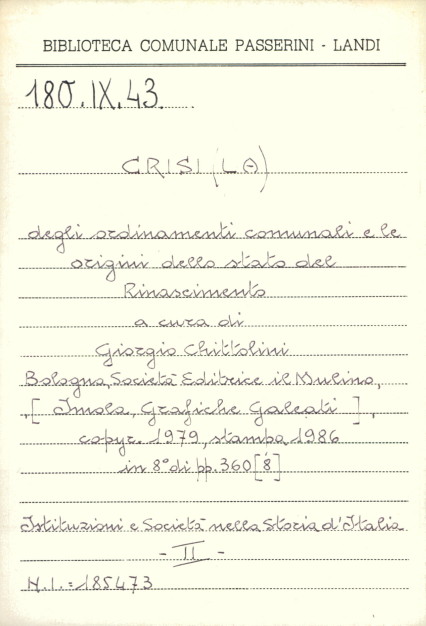 BIBLIOTECA COMUNALE PASSERINI - LANDI
180.IX.43.
CRISI (LA)
degli ordinamenti comunali e le
origini dello stato del
Rinascimento
a cura di
Giorgio Chittolini
Bologna, Società Editrice il Mulino,
[Imola, Grafiche Galeati],
copyr. 1979, stampa 1986
in 8° di pp. 360 [8]
Istituzioni e Società nella Storia d'Italia
- II -
N.I.=185473